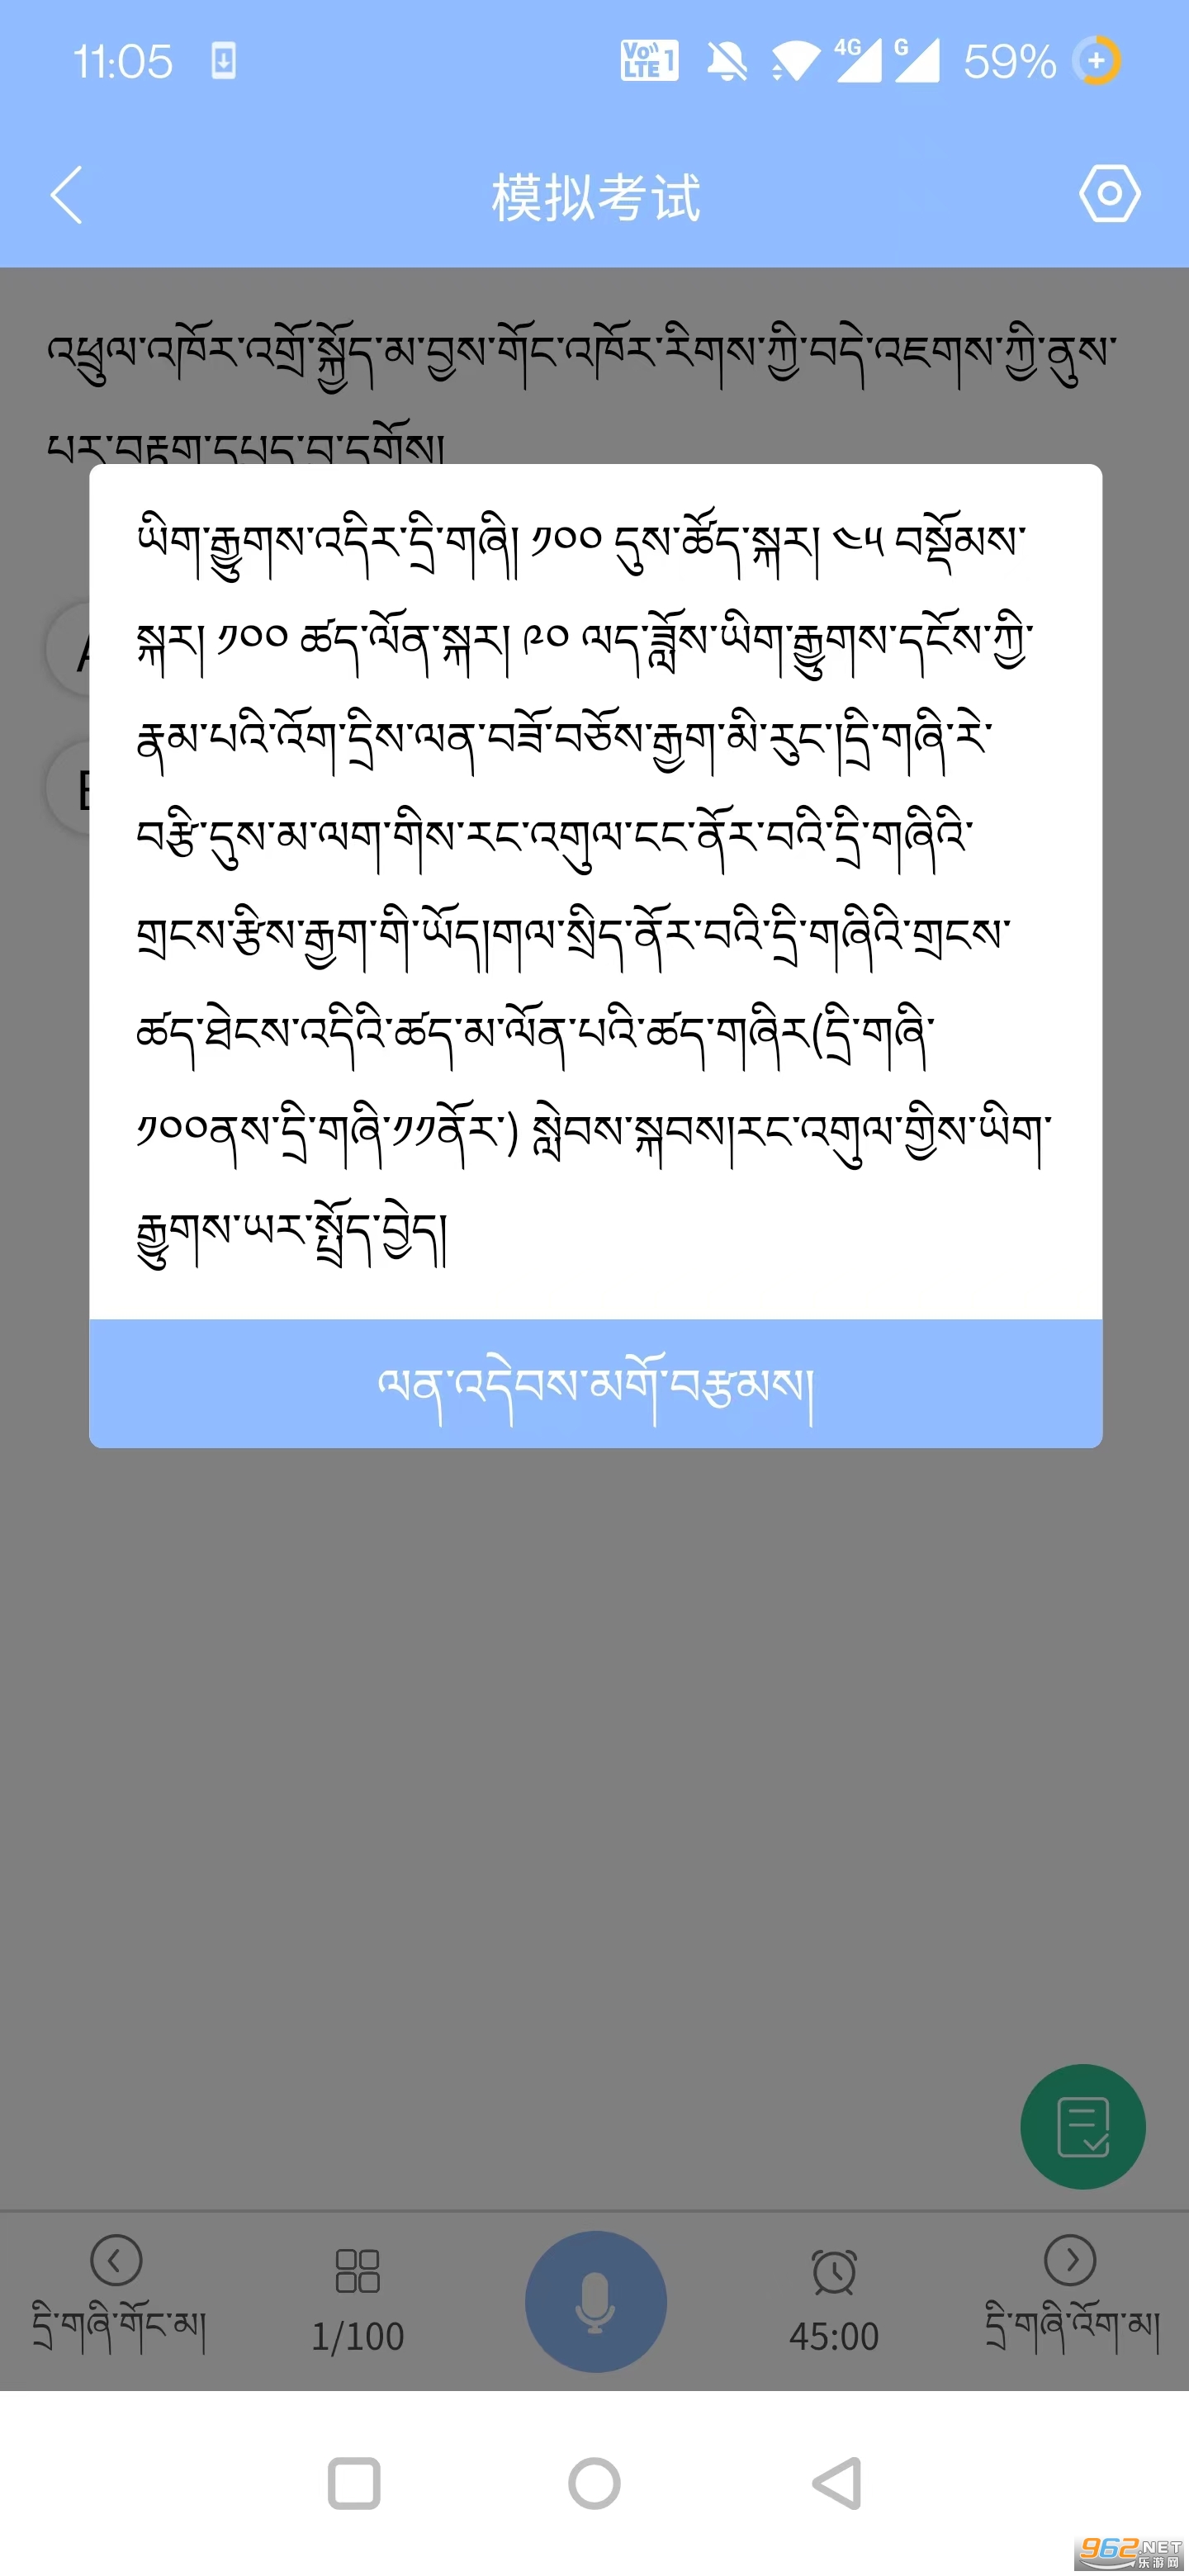 11:05
VoLTE 1 4G G 59%
模拟考试
འཕྲུལ་འཁོར་འགྲོ་སྐྱོད་མ་བྱས་གོང་འཁོར་རིགས་ཀྱི་བདེ་འཇགས་ཀྱི་ནུས་
པར་བརྟག་དཔད་བྱ་དགོས།
ཡིག་རྒྱུགས་འདིར་དྲི་གཞི། ༡༠༠ དུས་ཚོད་སྐར། ༤༥ བསྡོམས་
སྐར། ༡༠༠ ཚད་ལོན་སྐར། ༩༠ ལད་ཟློས་ཡིག་རྒྱུགས་དངོས་ཀྱི་
རྣམ་པའི་འོག་དྲིས་ལན་བཟོ་བཅོས་རྒྱག་མི་རུང་།དྲི་གཞི་རེ་
བརྩི་དུས་མ་ལག་གིས་རང་འགུལ་ངང་ནོར་བའི་དྲི་གཞིའི་
གྲངས་རྩིས་རྒྱག་གི་ཡོད།གལ་སྲིད་ནོར་བའི་དྲི་གཞིའི་གྲངས་
ཚད་ཐེངས་འདིའི་ཚད་མ་ལོན་པའི་ཚད་གཞིར(དྲི་གཞི་
༡༠༠ནས་དྲི་གཞི་༡༡ནོར་) སླེབས་སྐབས།རང་འགུལ་གྱིས་ཡིག་
རྒྱུགས་ཡར་སྤྲོད་བྱེད།
ལན་འདེབས་མགོ་བརྩམས།
དྲི་གཞི་གོང་མ། 1/100 45:00 དྲི་གཞི་འོག་མ།
962.NET
乐游网